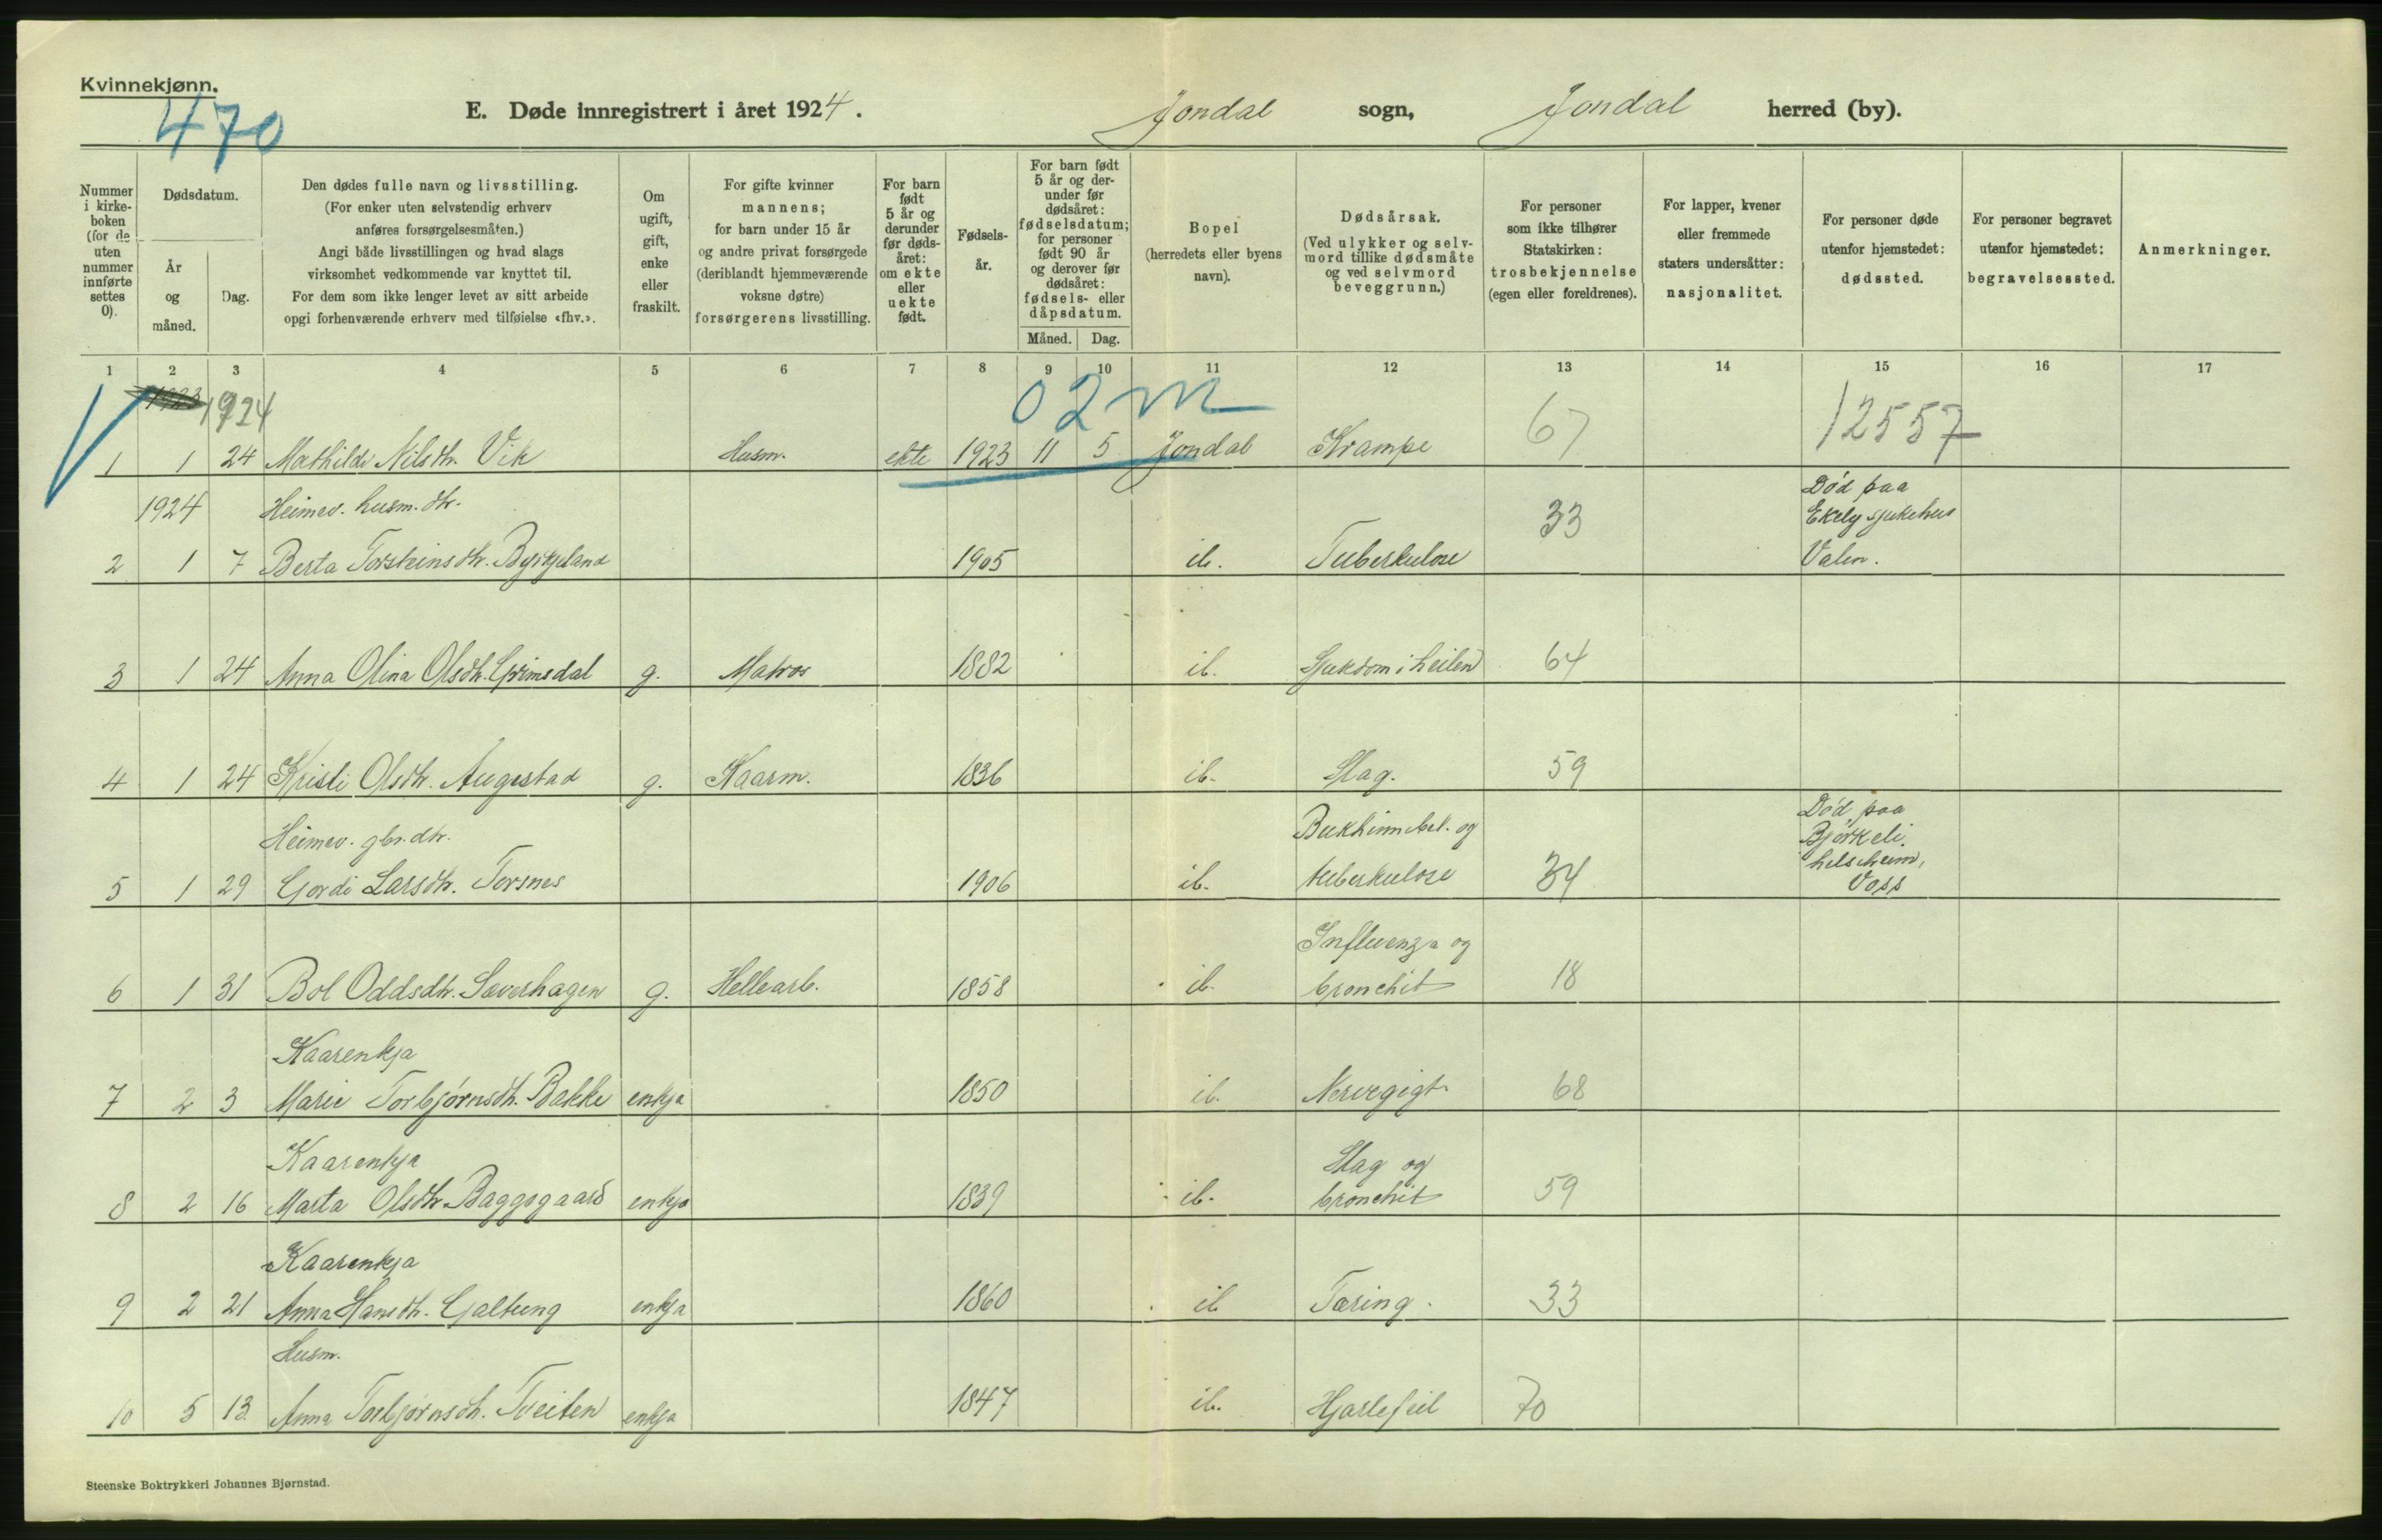 Kvinnekjønn.
470
E. Døde innregistrert i året 1924. Jondal sogn, Jondal herred (by).
Nummer i kirke-boken (for de uten nummer innførte settes 0).
Dødsdatum.
År og måned.
Dag.
Den dødes fulle navn og livsstilling.
(For enker uten selvstendig erhverv
anføres forsørgelsesmåten.)
Angi både livsstillingen og hvad slags
virksomhet vedkommende var knyttet til.
For dem som ikke lenger levet av sitt arbeide
opgi forhenværende erhverv med tilføielse «fhv.».
Om
ugift,
gift,
enke
eller
fraskilt.
For gifte kvinner
mannens;
for barn under 15 år
og andre privat forsørgede
(deriblandt hjemmeværende
voksne døtre)
forsørgerens livsstilling.
For barn
født
5 år og
derunder
før døds-
året:
om ekte
eller
uekte
født.
Fødsels-
år.
For barn født
5 år og der-
under før
dødsåret:
fødselsdatum;
for personer
født 90 år
og derover før
dødsåret:
fødsels- eller
dåpsdatum.
Måned. Dag.
Bopel
(herredets eller byens
navn).
Dødsårsak.
(Ved ulykker og selv-
mord tillike dødsmåte
og ved selvmord
beveggrunn.)
For personer
som ikke tilhører
Statskirken:
trosbekjennelse
(egen eller foreldrenes).
For lapper, kvener
eller fremmede
staters undersåtter:
nasjonalitet.
For personer døde
utenfor hjemstedet:
dødssted.
For personer begravet
utenfor hjemstedet:
begravelsessted.
Anmerkninger.
1 2 3 4 5 6 7 8 9 10 11 12 13 14 15 16 17
1923 1924 02 m
1 1 24 Mathilde Nilsdtr. Vik Husm. ekte 1923 11 5 Jondal Krampe 67 12557
1924 Heimev. husm. dtr. Död paa
Ekely sjukehus
2 1 7 Berta Torsteinsdtr. Byrkjeland 1905 ib. Tuberkulose 33 Valen.
3 1 24 Anna Olina Olsdtr. Grimsdal g. Matros 1882 ib. Sjukdom i heilen 64
4 1 24 Kristi Olsdtr. Augestad g. Kaarm. 1836 ib. Slag. 59
Heimev. gbr. dtr. Bukhinnebet. og Död paa
Björkeli
helseheim,
5 1 29 Gordi Larsdtr. Torsnes 1906 ib. tuberkulose 34 Voss
Influenza og
6 1 31 Bol Oddsdtr. Sæverhagen g. Hellearb. 1858 ib. bronchit 18
Kaarenkja
7 2 3 Marie Torbjørnsdtr. Bakke enkja 1850 ib. Nervegigt 68
Kaarenkja Slag og
8 2 16 Marta Olsdtr. Baggsgaard enkja 1839 ib. bronchit 59
Kaarenkja
9 2 21 Anna Hansdtr. Galtung enkja 1860 ib Tæring. 33
Husm.
10 5 13 Anna Torbjørnsdtr. Tveiten enkja 1847 ib. Hjartefeil 70
Steenske Boktrykkeri Johannes Bjørnstad.